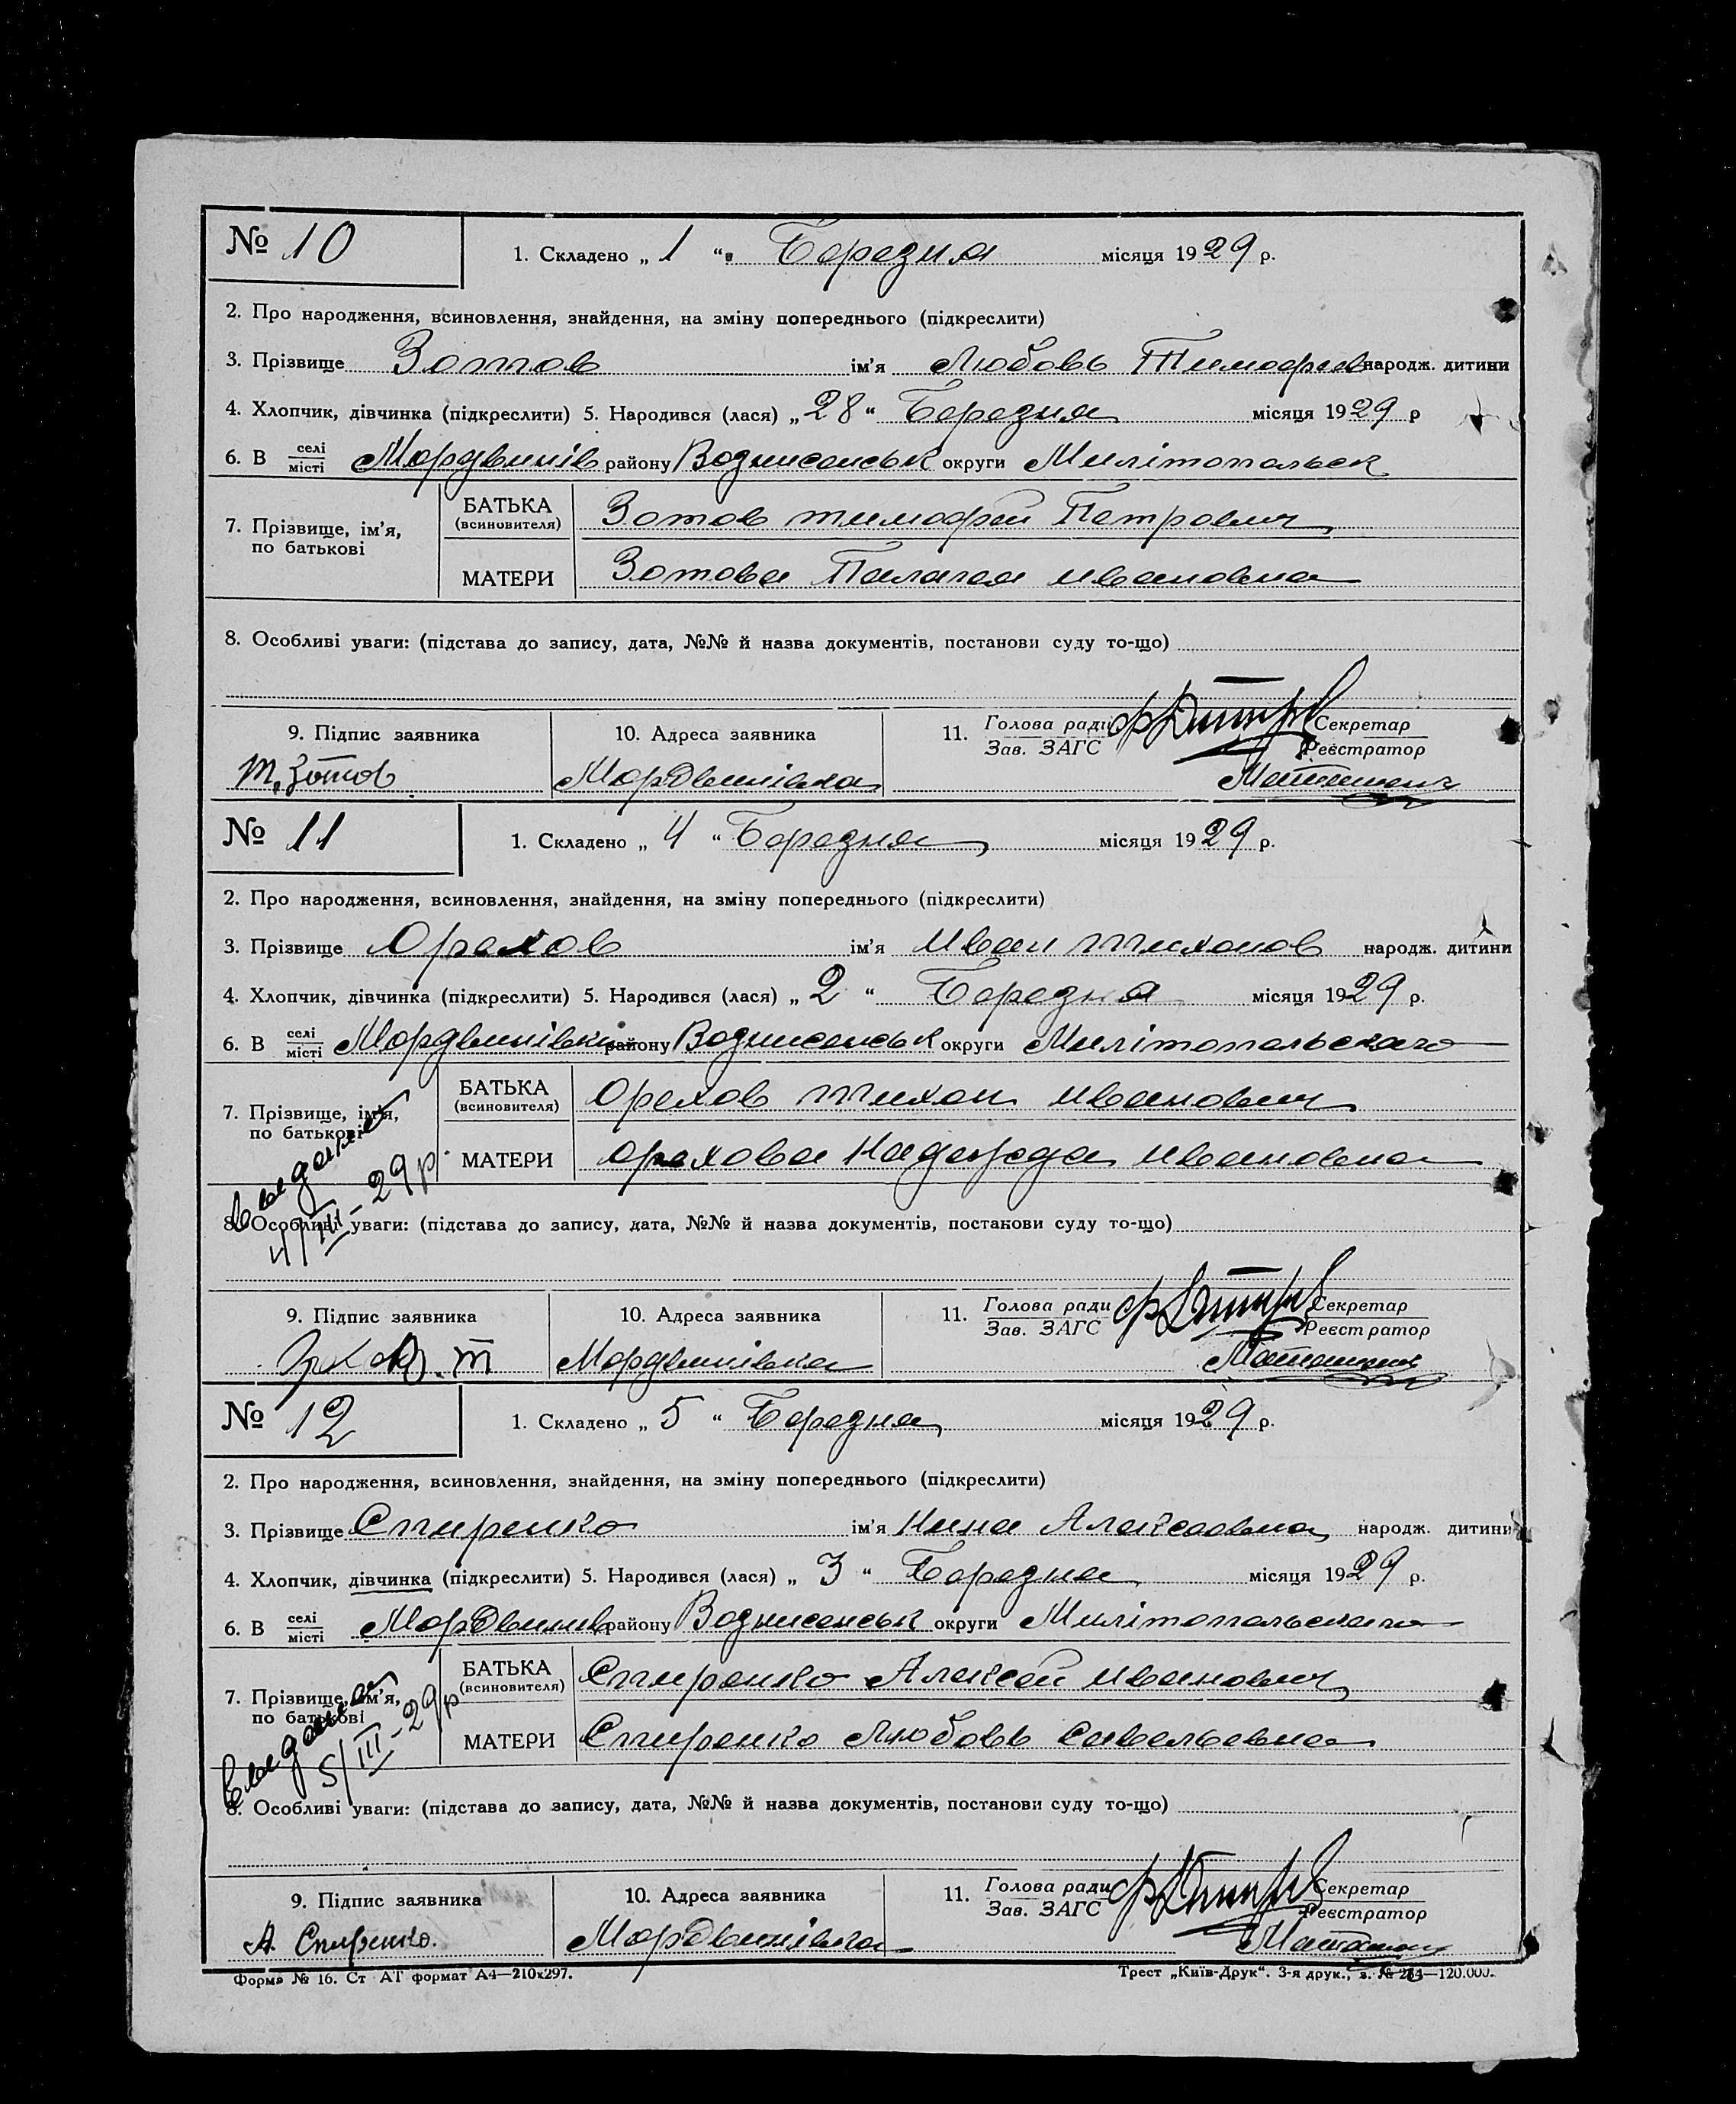 № 10 1. Складено „ 1 “ Березня місяця 1929 р.
2. Про народження, всиновлення, знайдення, на зміну попереднього (підкреслити)
3. Прізвище Зотов ім’я Любовь Тимофеев народж. дитини
4. Хлопчик, дівчинка (підкреслити) 5. Народився (лася) „ 28 “ Березня місяця 1929 р
6. В селі місті Мордвинів району Вознисенськ округи Милітопольск
7. Прізвище, ім’я, по батькові БАТЬКА (всиновителя) Зотов тимофей Петрович
МАТЕРИ Зотова Палагея ивановна
8. Особливі уваги: (підстава до запису, дата, №№ й назва документів, постанови суду то-що)
9. Підпис заявника 10. Адреса заявника 11. Голова ради Секретар
Зав. ЗАГС Реєстратор
Т. Зотов Мордвинівка
№ 11 1. Складено „ 4 “ Березня місяця 1929 р.
2. Про народження, всиновлення, знайдення, на зміну попереднього (підкреслити)
3. Прізвище Орехов ім’я Иван Тихонов народж. дитини
4. Хлопчик, дівчинка (підкреслити) 5. Народився (лася) „ 2 “ Березня місяця 1929 р.
6. В селі місті Мордвинівки району Вознисенськ округи Милітопольского
7. Прізвище, ім’я, по батькові БАТЬКА (всиновителя) Орехов Тихон иванович
МАТЕРИ Орехова Надежда ивановна
4/III-29р.
8. Особливі уваги: (підстава до запису, дата, №№ й назва документів, постанови суду то-що)
9. Підпис заявника 10. Адреса заявника 11. Голова ради Секретар
Зав. ЗАГС Реєстратор
Мордвинівка
№ 12 1. Складено „ 5 “ Березня місяця 1929 р.
2. Про народження, всиновлення, знайдення, на зміну попереднього (підкреслити)
3. Прізвище Спиренко ім’я Нина Алексеевна народж. дитини
4. Хлопчик, дівчинка (підкреслити) 5. Народився (лася) „ 3 “ Березня місяця 1929 р.
6. В селі місті Мордвинів району Вознисенськ округи Милітопольского
7. Прізвище, ім’я, по батькові БАТЬКА (всиновителя) Спиренко Алексей иванович
МАТЕРИ Спиренко Любовь Савельевна
5/III-29р
8. Особливі уваги: (підстава до запису, дата, №№ й назва документів, постанови суду то-що)
9. Підпис заявника 10. Адреса заявника 11. Голова ради Секретар
Зав. ЗАГС Реєстратор
А. Спиренко. Мордвинівка
Форма № 16. Ст АТ формат А4—210х297. Трест „Київ-Друк“. 3-я друк., з. № 234—120.000.